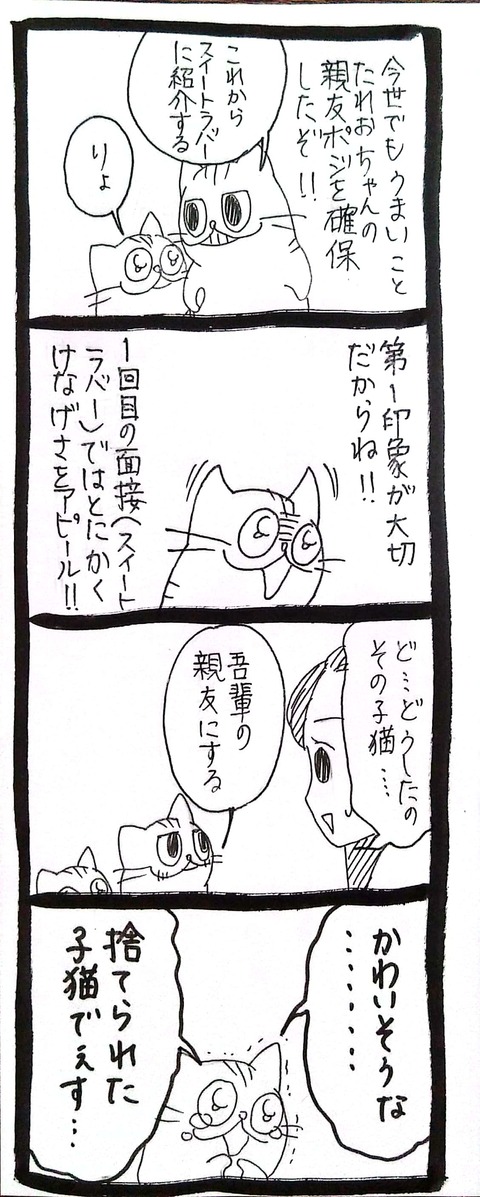 今世でもうまいこと
たれおちゃんの
親友ポジを確保
したぞ!!
これから
スイートラバー
に紹介する
りょ
第1印象が大切
だからね!!
1回目の面接(スイート
ラバー)ではとにかく
けなげさをアピール!!
ど…どうしたの
その子猫…
吾輩の
親友にする
かわいそうな
………
捨てられた
子猫でぇす…